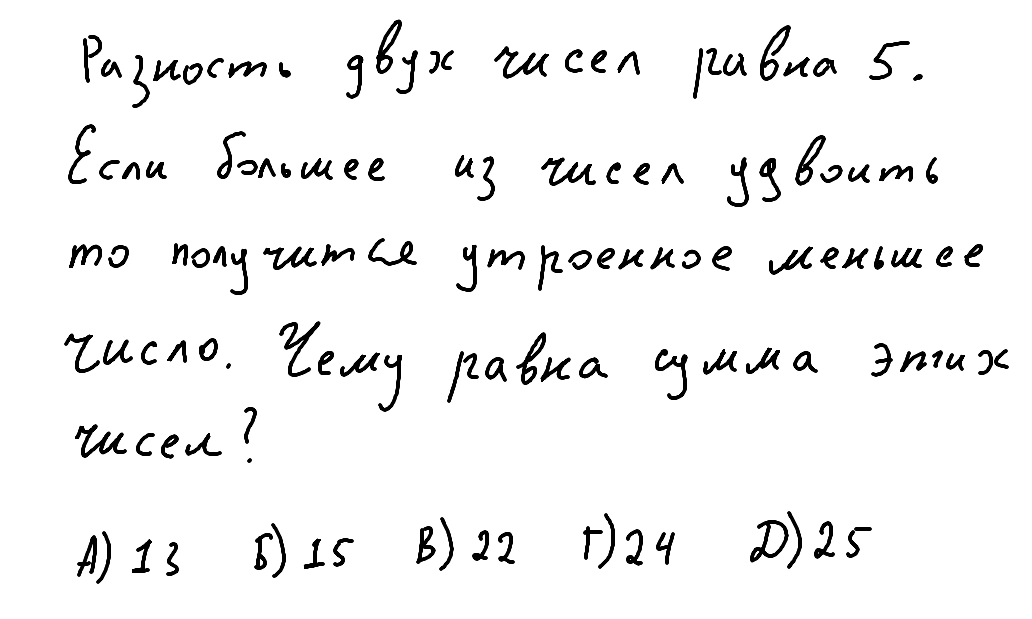 Разность двух чисел равна 5.
Если большее из чисел удвоить
то получится утроенное меньшее
число. Чему равна сумма этих
чисел?
А) 13 Б) 15 В) 22 Г) 24 Д) 25